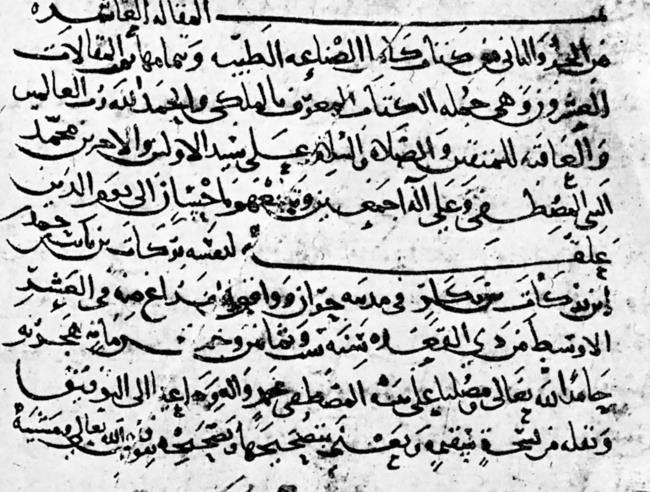 المقاله العاشره
من الجزو الثاني من كتاب كامل الصناعه الطبيه وبتمامها تمت المقالات
العشرون وهي جمله الكتاب المعروف بالملكي والحمد لله رب العالمين
والعاقبه للمتقين والصلاة والسلام على سيد الاولين والاخرين محمد
النبي المصطفى وعلى آله اجمعين باحسان الى يوم الدين
علقه لنفسه بركات بن ثابت
ابن بركات في مدينة ووافق الفراغ منه في العشر
الاوسط من ذي القعده سنة ست وثمانين وخمسمائة هجريه
حامدا لله تعالى ومصليا على نبيه المصطفى محمد واله
ونقله من نسخة سقيمه بتصحيحها وتصحيحه بعون الله تعالى ومشيته